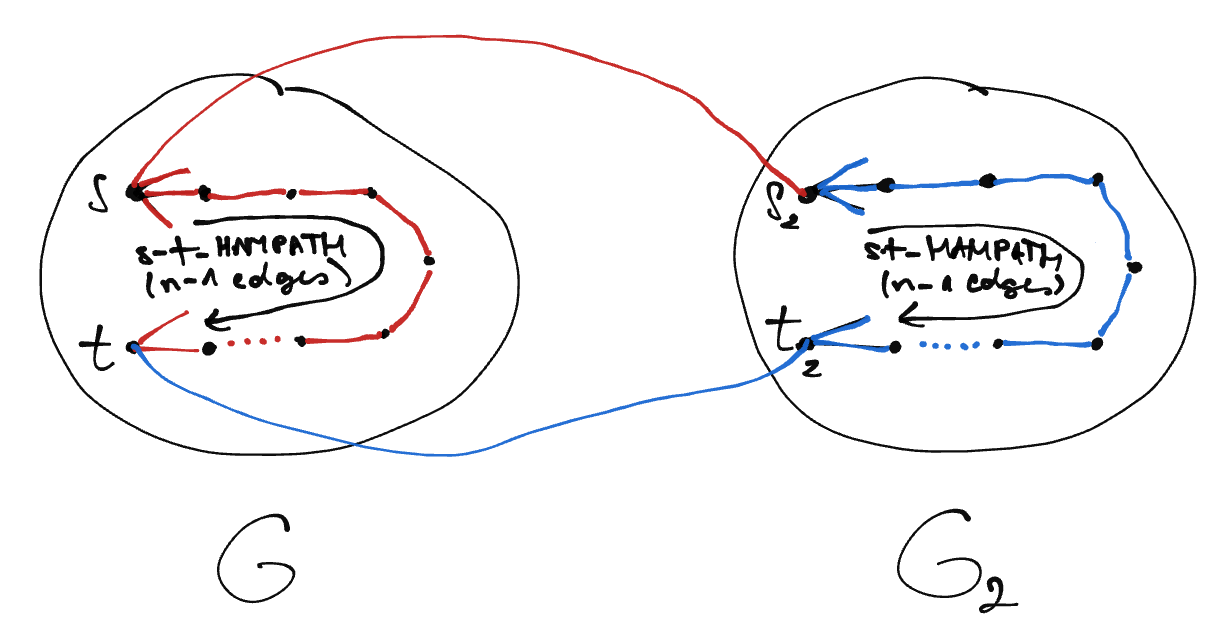 s
s-t-HAMPATH
(n-1 edges)
t
G
s₂
st-HAMPATH
(n-1 edges)
t₂
G₂